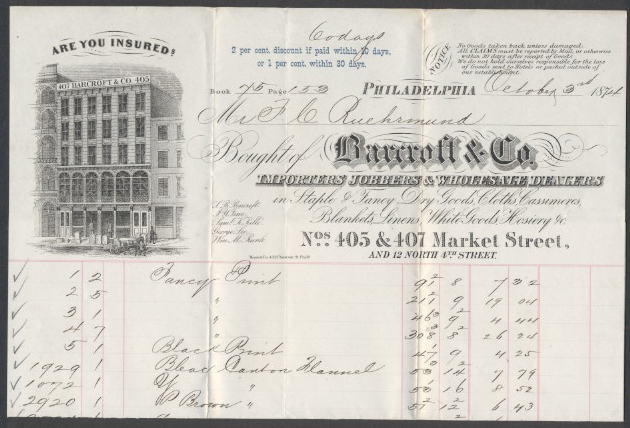 ARE YOU INSURED?
407 BARCROFT & CO. 405
60 days
2 per cent. discount if paid within 10 days,
or 1 per cent. within 30 days.
NOTICE
No Goods taken back unless damaged.
ALL CLAIMS must be reported by Mail, or otherwise
within 10 days after receipt of Goods
We do not hold ourselves responsible for the loss
of Goods sent to Hotels or packed outside of
our establishment.
Book 75 Page 153
PHILADELPHIA October 3rd 1874
Mr F. C. Ruchrmund
Bought of Barcroft & Co.
IMPORTERS JOBBERS & WHOLESALE DEALERS
in Staple & Fancy Dry Goods, Cloths, Cassimeres,
Blankets, Linens, White Goods, Hosiery &c
Nos. 405 & 407 Market Street,
AND 12 NORTH 4TH STREET.
1 2 Fancy Print 91 2 8 7 32
2 5 " 211 9 19 04
3 1 " 9 4 44
4 7 " 308 8 26 24
5 1 Black Print 47 9 4 25
1929 1 Canton Flannel 14 7 79
1072 1 " 16 8 52
2920 1 Brown " 12 6 43